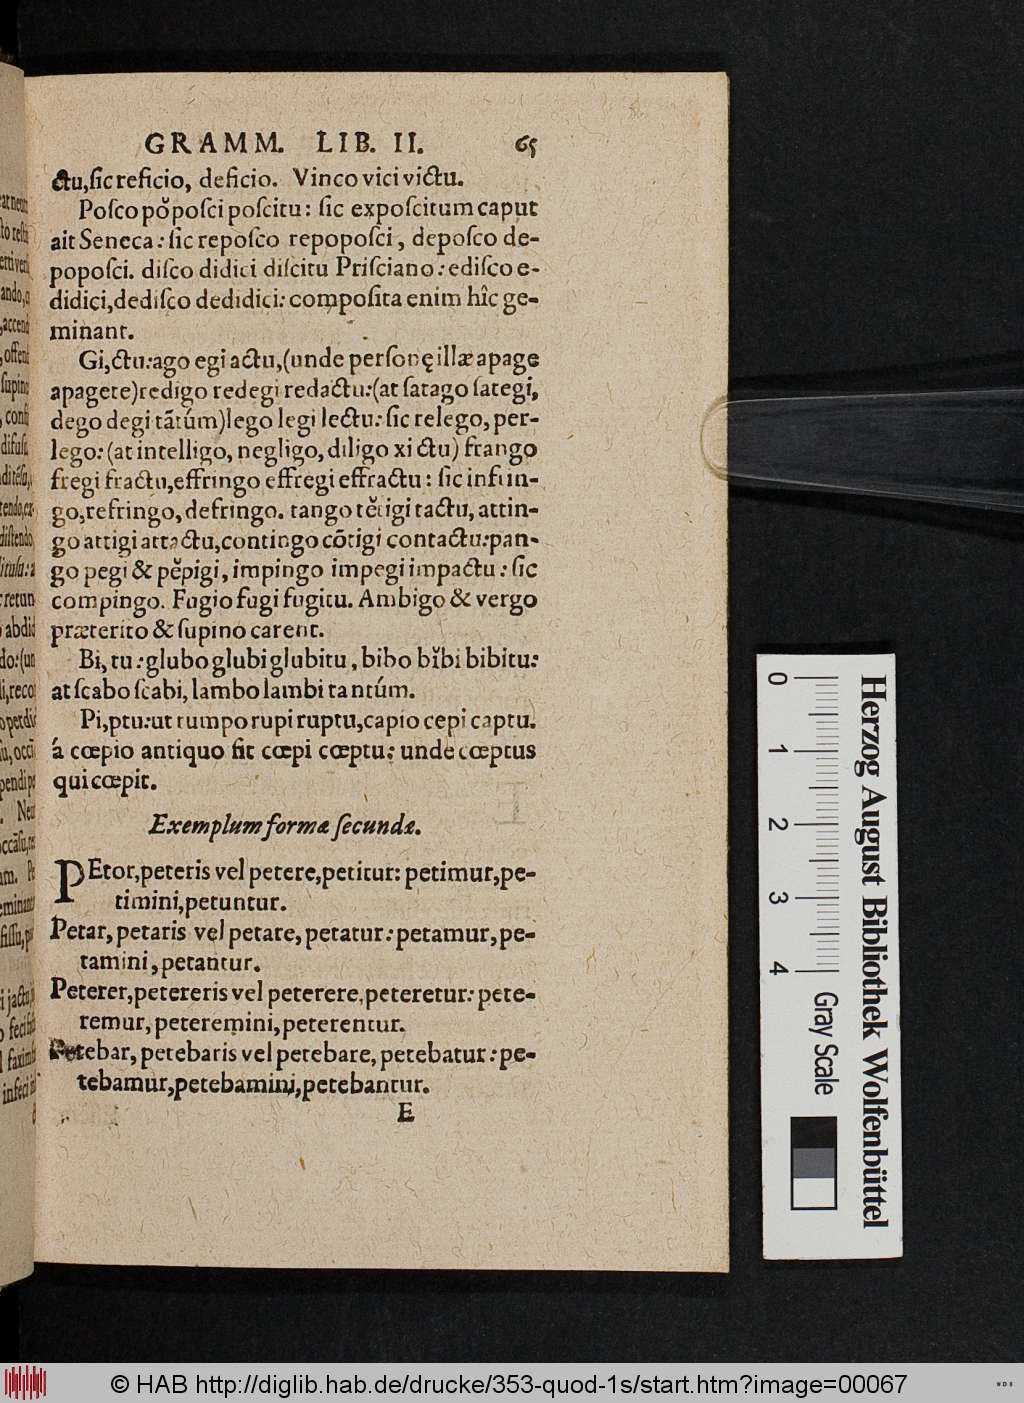 GRAMM. LIB. II. 65
ctu, ſic reficio, deficio. Vinco vici victu.
Poſco pŏpoſci poſcitu: ſic expoſcitum caput
ait Seneca: ſic repoſco repopoſci, depoſco de-
popoſci. diſco didici diſcitu Priſciano: ediſco e-
didici, dediſco dedidici: compoſita enim hîc ge-
minant.
Gi, ctu: ago egi actu, (unde perſonę illæ apage
apagete) redigo redegi redactu: (at ſatago ſategi,
dego degi tãtúm) lego legi lectu: ſic relego, per-
lego: (at intelligo, negligo, diligo xi ctu) frango
fregi fractu, effringo effregi effractu: ſic infrin-
go, refringo, defringo. tango tĕtigi tactu, attin-
go attigi attactu, contingo cõtigi contactu: pan-
go pegi & pĕpigi, impingo impegi impactu: ſic
compingo. Fugio fugi fugitu. Ambigo & vergo
præterito & ſupino carent.
Bi, tu: glubo glubi glubitu, bibo bĭbi bibitu:
at ſcabo ſcabi, lambo lambi tantúm.
Pi, ptu: ut rumpo rupi ruptu, capio cepi captu.
á cœpio antiquo fit cœpi cœptu: unde cœptus
qui cœpit.
Exemplum formæ ſecundæ.
PEtor, peteris vel petere, petitur: petimur, pe-
timini, petuntur.
Petar, petaris vel petare, petatur: petamur, pe-
tamini, petantur.
Peterer, petereris vel peterere, peteretur: pete-
remur, peteremini, peterentur.
Petebar, petebaris vel petebare, petebatur: pe-
tebamur, petebamini, petebantur.
E
0 1 2 3 4
Gray Scale
Herzog August Bibliothek Wolfenbüttel
© HAB http://diglib.hab.de/drucke/353-quod-1s/start.htm?image=00067